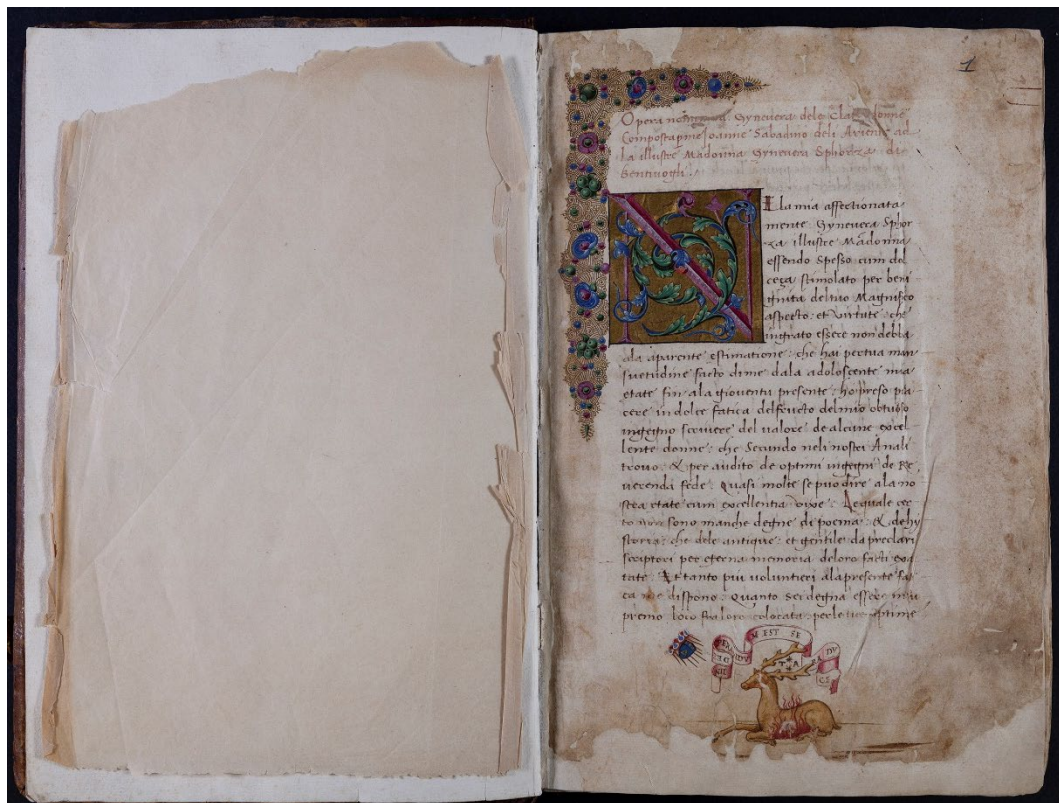 1
Opera nominata Gynevera dele Clare donne
Composta per me Joanne Sabadino deli Arienti ad
la illustre Madonna Gynevera Sphorza di
Bentivogli.
N Ela mia affectionata
mente Gynevera Sphor
za illustre Madonna
essendo spesso cum dol
ceça stimolato per beni
gnita del tuo Magnifico
aspecto: et virtute: che
ingrato essere non debba
ala aparente estimatione: che hai per tua man
suetudine facto di me dala adoloscente mia
etate fin ala gioventu presente: ho preso pia
cere in dolce fatica del fructo del mio obtuso
ingegno scrivere del valore de alcune excel
lente donne: che secundo neli nostri Anali
trovo: & per audito de optimi ingegni de Re
verenda fede: Quasi molte se puo dire ala no
stra etate cum excellentia vixe: Le quale cer
to non sono manche degne di poema: & de hy
storia: che dele antique: et gentile da preclari
scriptori per eterna memoria de loro facti exa
tate: Et tanto piu voluntieri ala presente fa
ca me dispono: Quanto sei degna essere in su
premo loco fra loro colocata per le tue optime
M EST SE
DV
CE